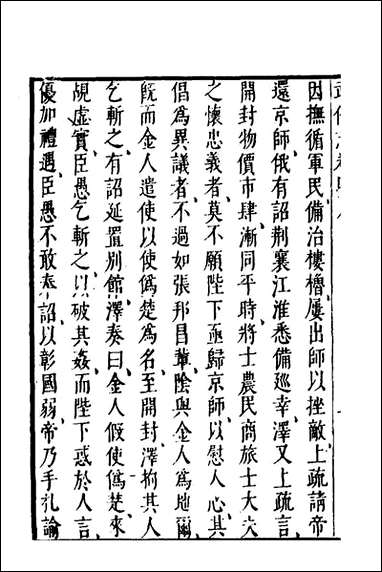 因撫循軍民備治樓櫓屢出師以挫敵上疏請帝
還京師俄有詔荆襄江淮悉備廵幸澤又上疏言
開封物價市肆漸同平時將士農民商旅士大夫
之懷忠義者莫不願陛下亟歸京師以慰人心其
倡為異議者不過如張邦昌輩陰與金人為地爾
旣而金人遣使以使僞楚為名至開封澤拘其人
乞斬之有詔延置别館澤奏曰金人假使僞楚來
覘虛實臣愚乞斬之以破其姦而陛下惑於人言
優加禮遇臣愚不敢奉詔以彰國弱帝乃手札諭